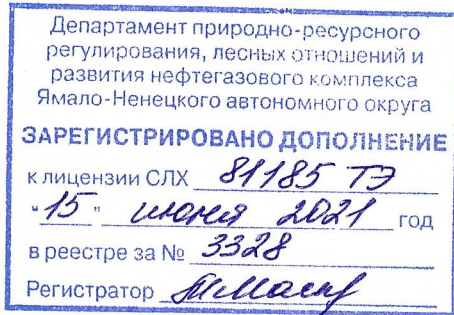 Департамент природно-ресурсного
регулирования, лесных отношений и
развития нефтегазового комплекса
Ямало-Ненецкого автономного округа
ЗАРЕГИСТРИРОВАНО ДОПОЛНЕНИЕ
к лицензии СЛХ 81185 ТЭ
"15" июня 2021 год
в реестре за № 3328
Регистратор